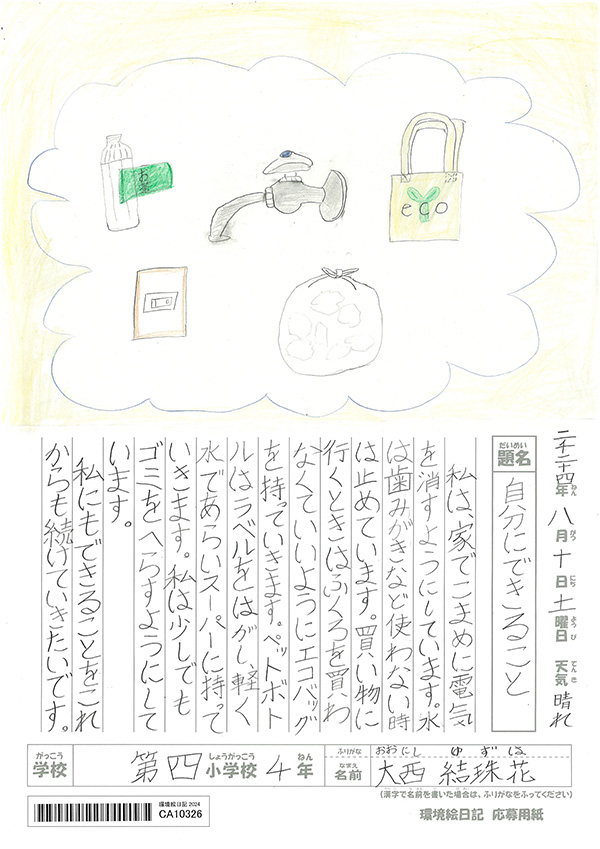 お茶
eco
二千二十四年 八月 十日 土曜日 天気 晴れ
ねん がつ にち ようび てんき
だいめい
題名
自分にできること
私は、家でこまめに電気
を消すようにしています。水
は歯みがきなど使わない時
は止めています。買い物に
行くときはふくろを買わ
なくていいようにエコバッグ
を持っていきます。ペットボト
ルはラベルをはがし、軽く
水であらいスーパーに持って
いきます。私は少しでも
ゴミをへらすようにして
います。
私にもできることをこれ
からも続けていきたいです。
がっこう しょうがっこう ねん
学校 第四小学校 4年
ふりがな おおにし ゆずは
なまえ
名前 大西 結珠花
(漢字で名前を書いた場合は、ふりがなをふってください)
環境絵日記 2024
CA10326
環境絵日記 応募用紙